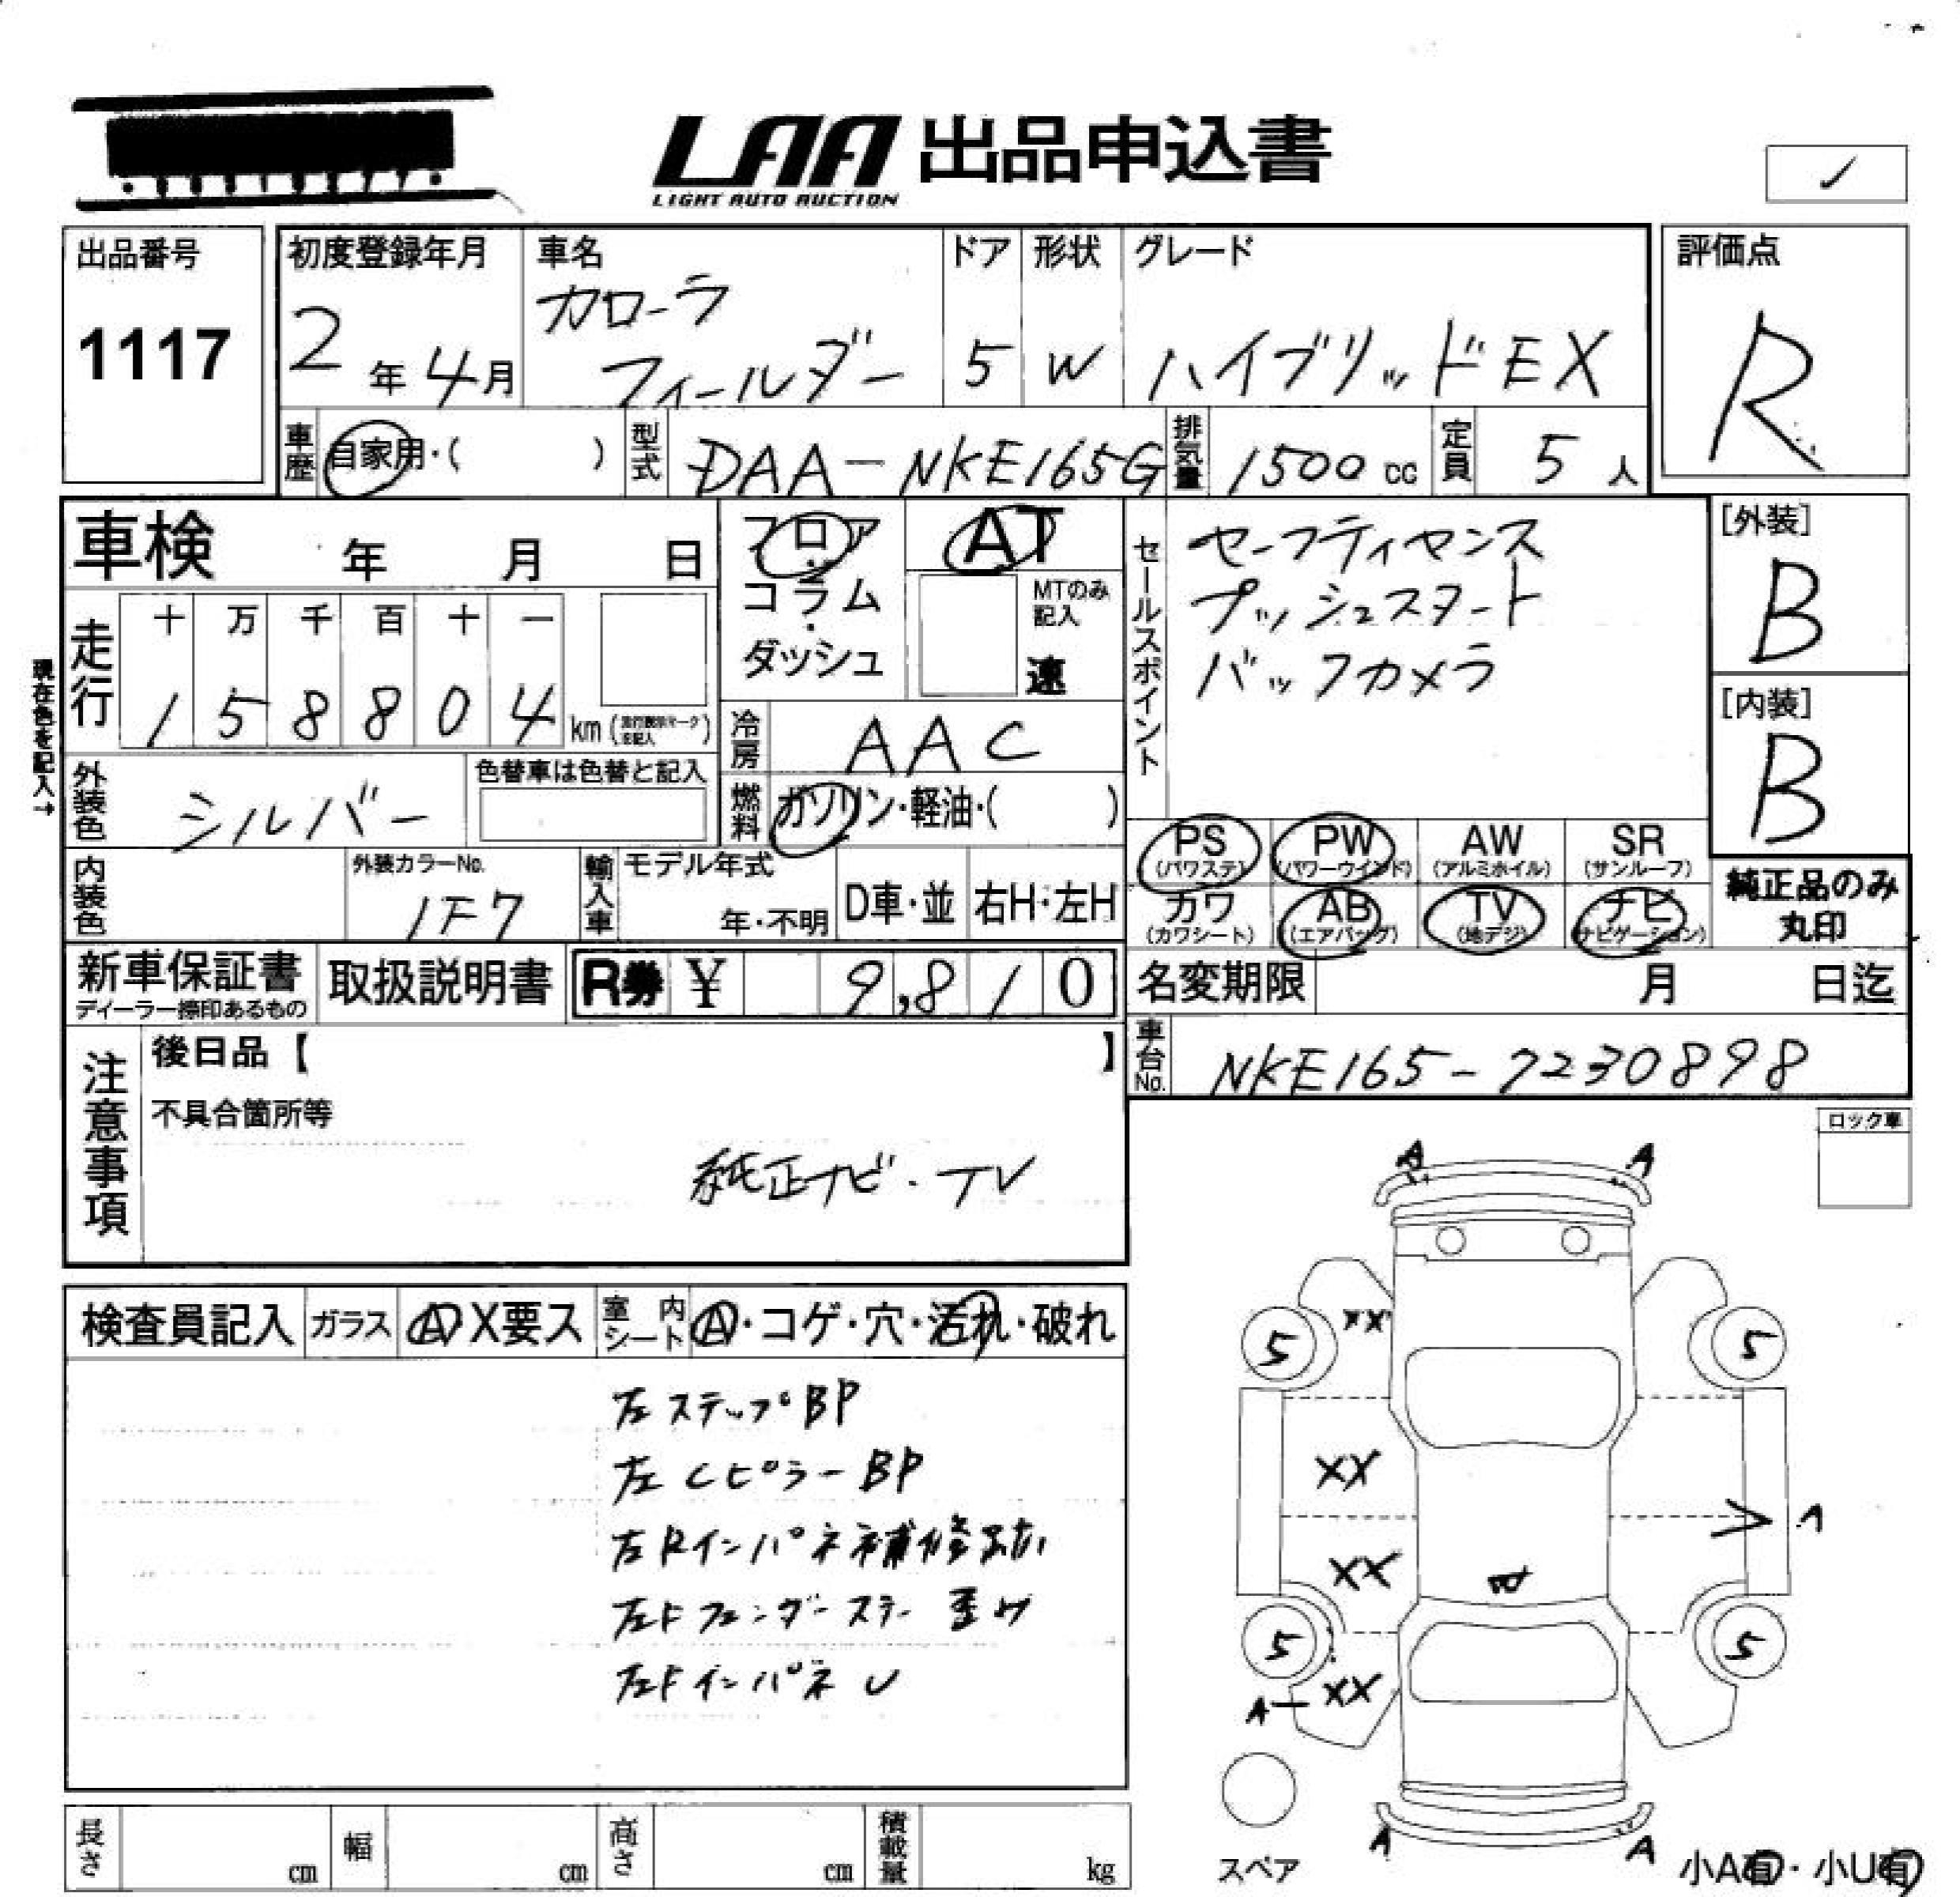 LAA 出品申込書
LIGHT AUTO AUCTION
出品番号
1117
初度登録年月
2年4月
車名
カローラ
フィールダー
ドア
5
形状
W
グレード
ハイブリッドEX
評価点
R
車歴
自家用・( )
型式
DAA-NKE165G
排気量
1500 cc
定員
5 人
車検 年 月 日
フロア
コラム
ダッシュ
AT
MTのみ
記入
速
セールスポイント
セーフティセンス
プッシュスタート
バックカメラ
[外装]
B
[内装]
B
現在色を記入→
走行
十 万 千 百 十 一
1 5 8 8 0 4 km
冷房
AAC
外装色
シルバー
色替車は色替と記入
燃料
ガソリン・軽油・( )
PS
(パワステ)
PW
(パワーウインド)
AW
(アルミホイル)
SR
(サンルーフ)
カワ
(カワシート)
AB
(エアバッグ)
TV
(地デジ)
ナビ
(ナビゲーション)
純正品のみ
丸印
内装色
外装カラーNo.
1F7
輸入車
モデル年式
年・不明
D車・並
右H・左H
新車保証書
ディーラー捺印あるもの
取扱説明書
R券 ¥ 9,810
名変期限 月 日迄
車台No.
NKE165-7230898
注意事項
後日品【 】
不具合箇所等
純正ナビ・TV
ロック車
検査員記入
ガラス
A X要ス
室内
シート
A・コゲ・穴・汚れ・破れ
左ステップBP
左CピラーBP
左Rインパネ補修跡
左Fフェンダーステー歪み
左FインパネU
A A
XX
5 5
XX
A
XX
5 5
A XX
A A
スペア
小A有・小U有
長さ cm
幅 cm
高さ cm
積載量 kg